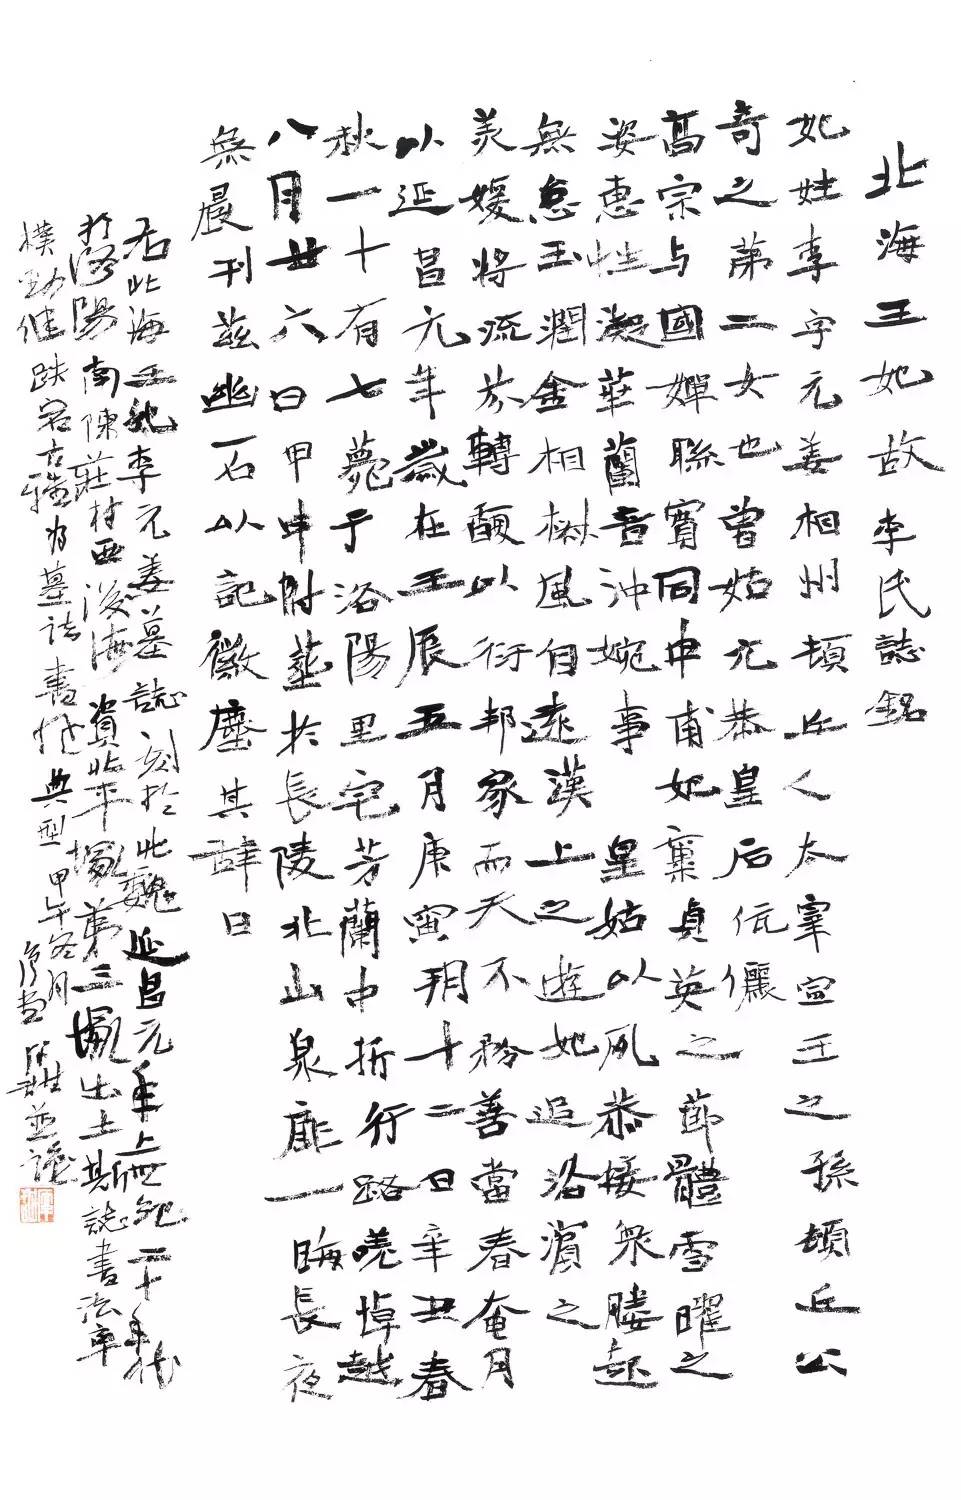 北海王妃故李氏誌銘
妃姓李字元姜相州頓丘人太宰宣王之孫頓丘公
奇之第二女也曾姑元恭皇后伉儷
高宗与國嬋聯賓同申甫妃稟貞英之節體雪曜之
姿惠性凝華蘭音沖婉事皇姑以夙恭接衆䁖起
無怠玉潤金相樹風自遠漢上之遊妃追洛濱之
美媛將流芬轉馥以衍邦家而天不務善當春奄月
以延昌元年歲在壬辰五月庚寅玥十二日辛丑春
秋一十有七薨于洛陽里宅芳蘭中折行路嗟悼越
八月廿六日甲申附葬於長陵北山泉扉一晦長夜
無晨刊茲幽石以記徽塵其辭曰
右北海王妃李元姜墓誌刻於北魏延昌元年上世紀二十年代
於洛陽南陳莊村西後海資北平塚第三塚出土斯誌書法率
樸勁健跌宕古雅為墓誌書法典型甲午冬月
並識